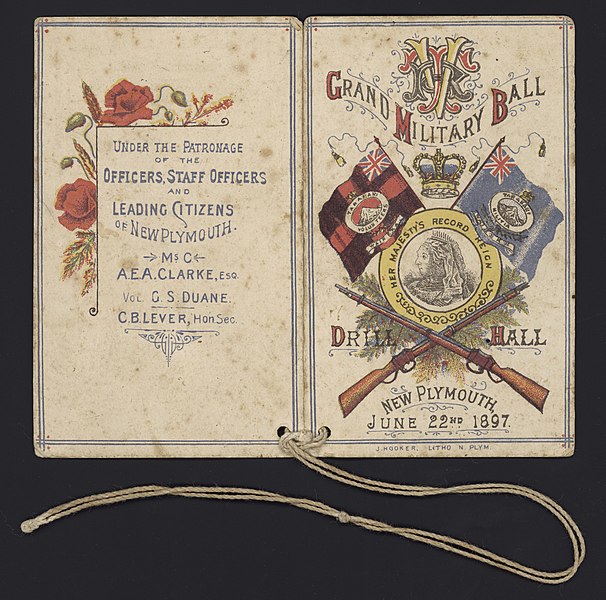 UNDER THE PATRONAGE
OF THE
OFFICERS, STAFF OFFICERS
AND
LEADING CITIZENS
OF NEW PLYMOUTH.
Ms C
A.E.A. CLARKE, ESQ.
VOL. G. S. DUANE.
C. B. LEVER, Hon Sec.
GRAND MILITARY BALL
HER MAJESTY'S RECORD REIGN
DRILL HALL
NEW PLYMOUTH,
JUNE 22ND 1897.
J. HOOKER, LITHO N. PLYM.